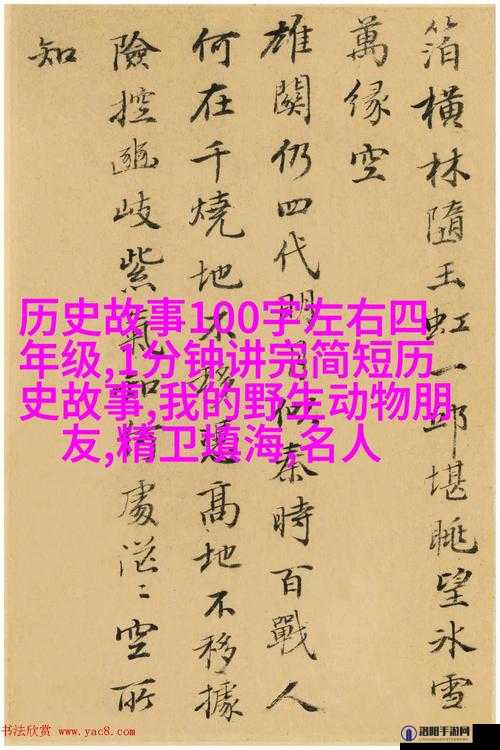 橫林隨玉虹一邱堪眺望冰雪
萬緣空
雄關仍四代明月秦時百戰人
何在千燒地不移高地不移據
險控幽岐紫氣處茫〻空所
知
历史故事100字左右四
年级,1分钟讲完简短历
史故事,我的野生动物朋
友,精卫填海,名人
书法欣赏 www.yac8.com
洛阳手游网